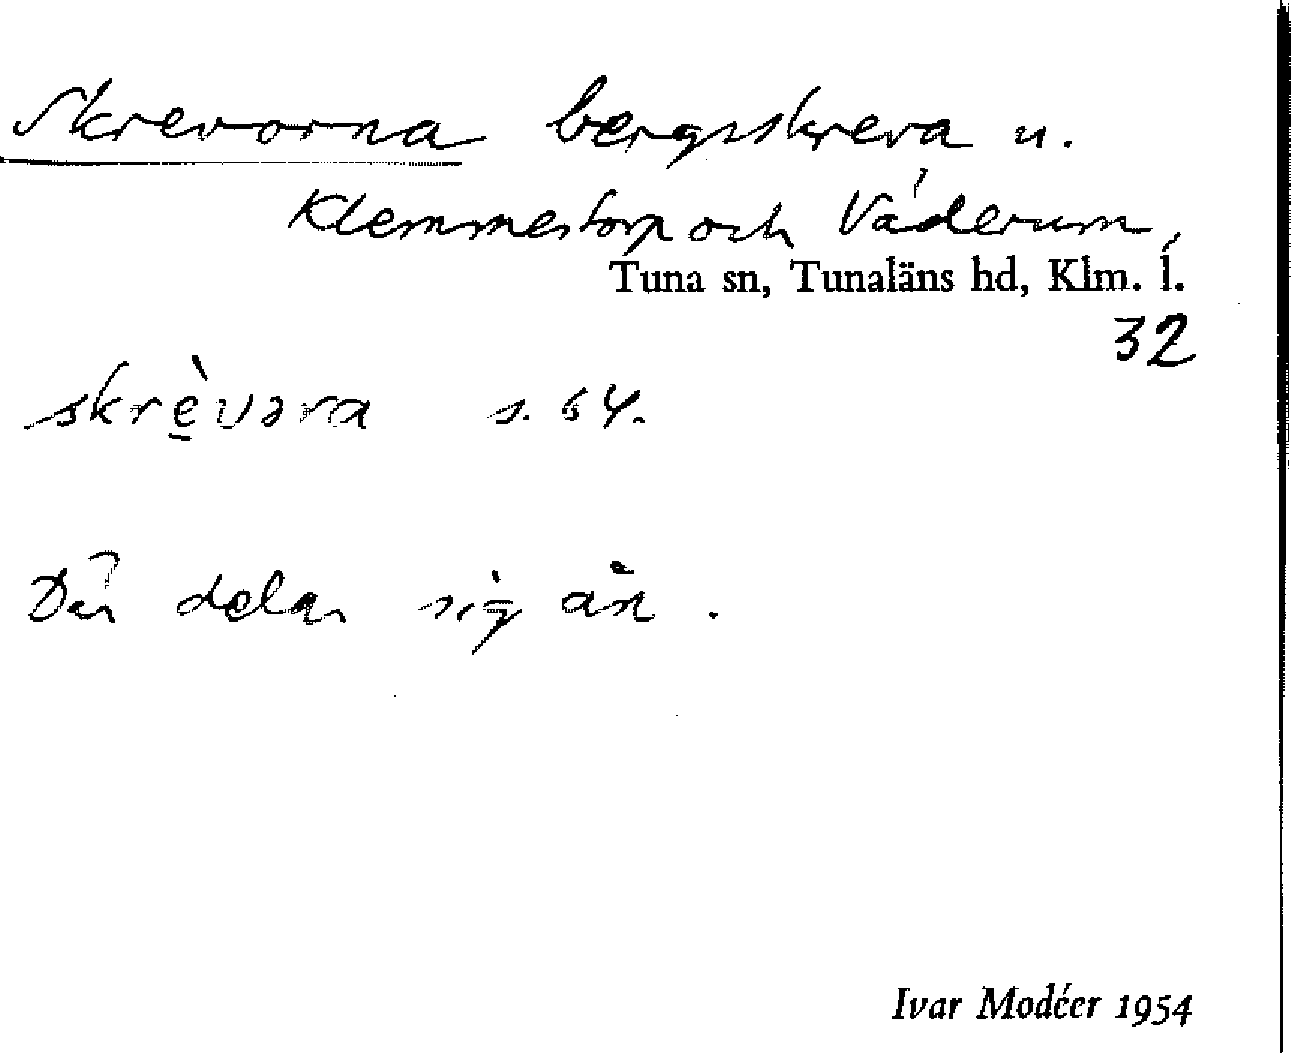 Skrevorna bergsskreva u.
Klemmestorp och Väderum,
Tuna sn, Tunaläns hd, Klm. l.
32
skrèvəra s. 64.
Där delar sig ån.
Ivar Modéer 1954